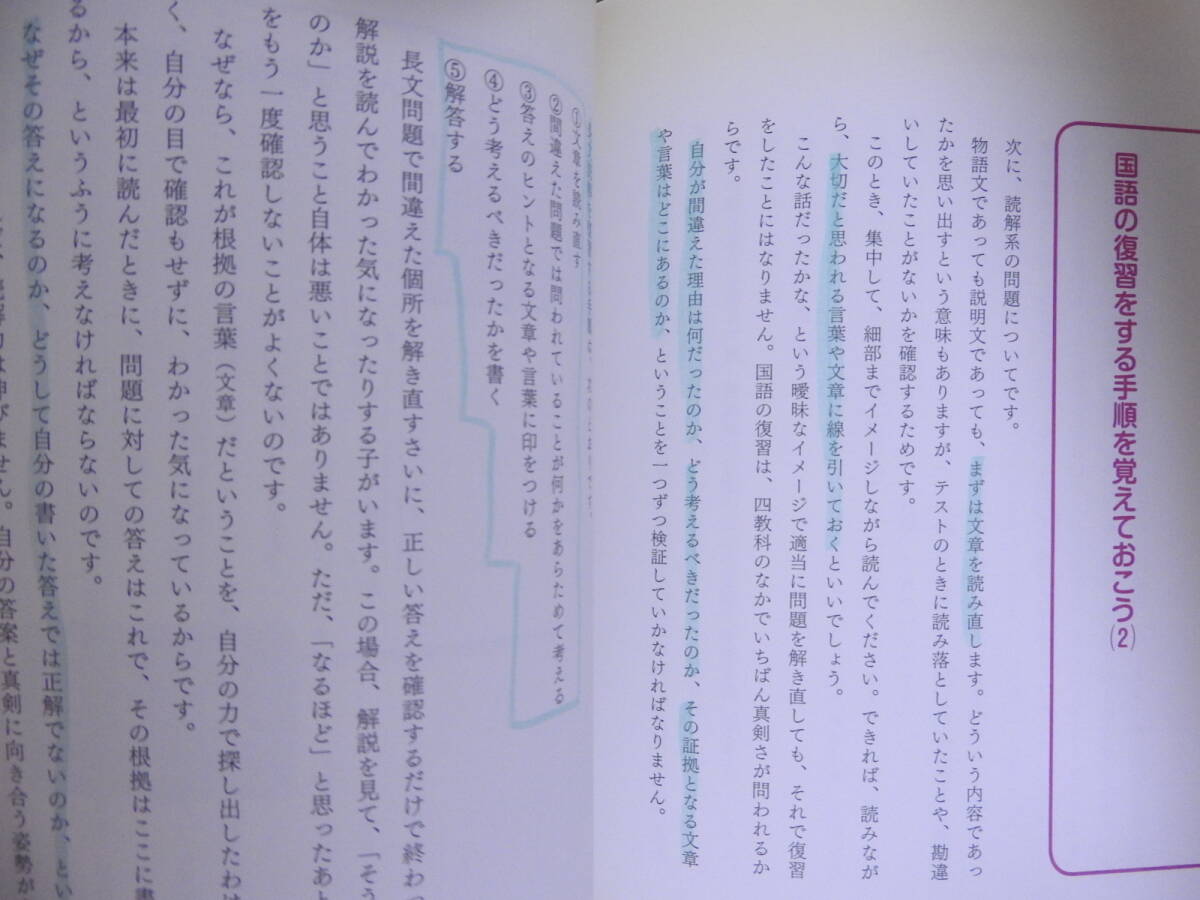 国語の復習をする手順を覚えておこう(2)
次に、読解系の問題についてです。
物語文であっても説明文であっても、まずは文章を読み直します。どういう内容であっ
たかを思い出すという意味もありますが、テストのときに読み落としていたことや、勘違
いしていたことがないかを確認するためです。
このとき、集中して、細部までイメージしながら読んでください。できれば、読みなが
ら、大切だと思われる言葉や文章に線を引いておくといいでしょう。
こんな話だったかな、という曖昧なイメージで適当に問題を解き直しても、それで復習
をしたことにはなりません。国語の復習は、四教科のなかでいちばん真剣さが問われるか
らです。
自分が間違えた理由は何だったのか、どう考えるべきだったのか、その証拠となる文章
や言葉はどこにあるのか、ということを一つずつ検証していかなければなりません。
①文章を読み直す
②間違えた問題では問われていることが何かをあらためて考える
③答えのヒントとなる文章や言葉に印をつける
④どう考えるべきだったかを書く
⑤解答する
長文問題で間違えた個所を解き直すさいに、正しい答えを確認するだけで終わっ
解説を読んでわかった気になったりする子がいます。この場合、解説を見て、「そう
のか」と思うこと自体は悪いことではありません。ただ、「なるほど」と思ったあと
をもう一度確認しないことがよくないのです。
なぜなら、これが根拠の言葉（文章）だということを、自分の力で探し出したわけ
く、自分の目で確認もせずに、わかった気になっているからです。
本来は最初に読んだときに、問題に対しての答えはこれで、その根拠はここに書
るから、というふうに考えなければならないのです。
なぜその答えになるのか、どうして自分の書いた答えでは正解でないのか、とい
は伸びません。自分の答案と真剣に向き合う姿勢が